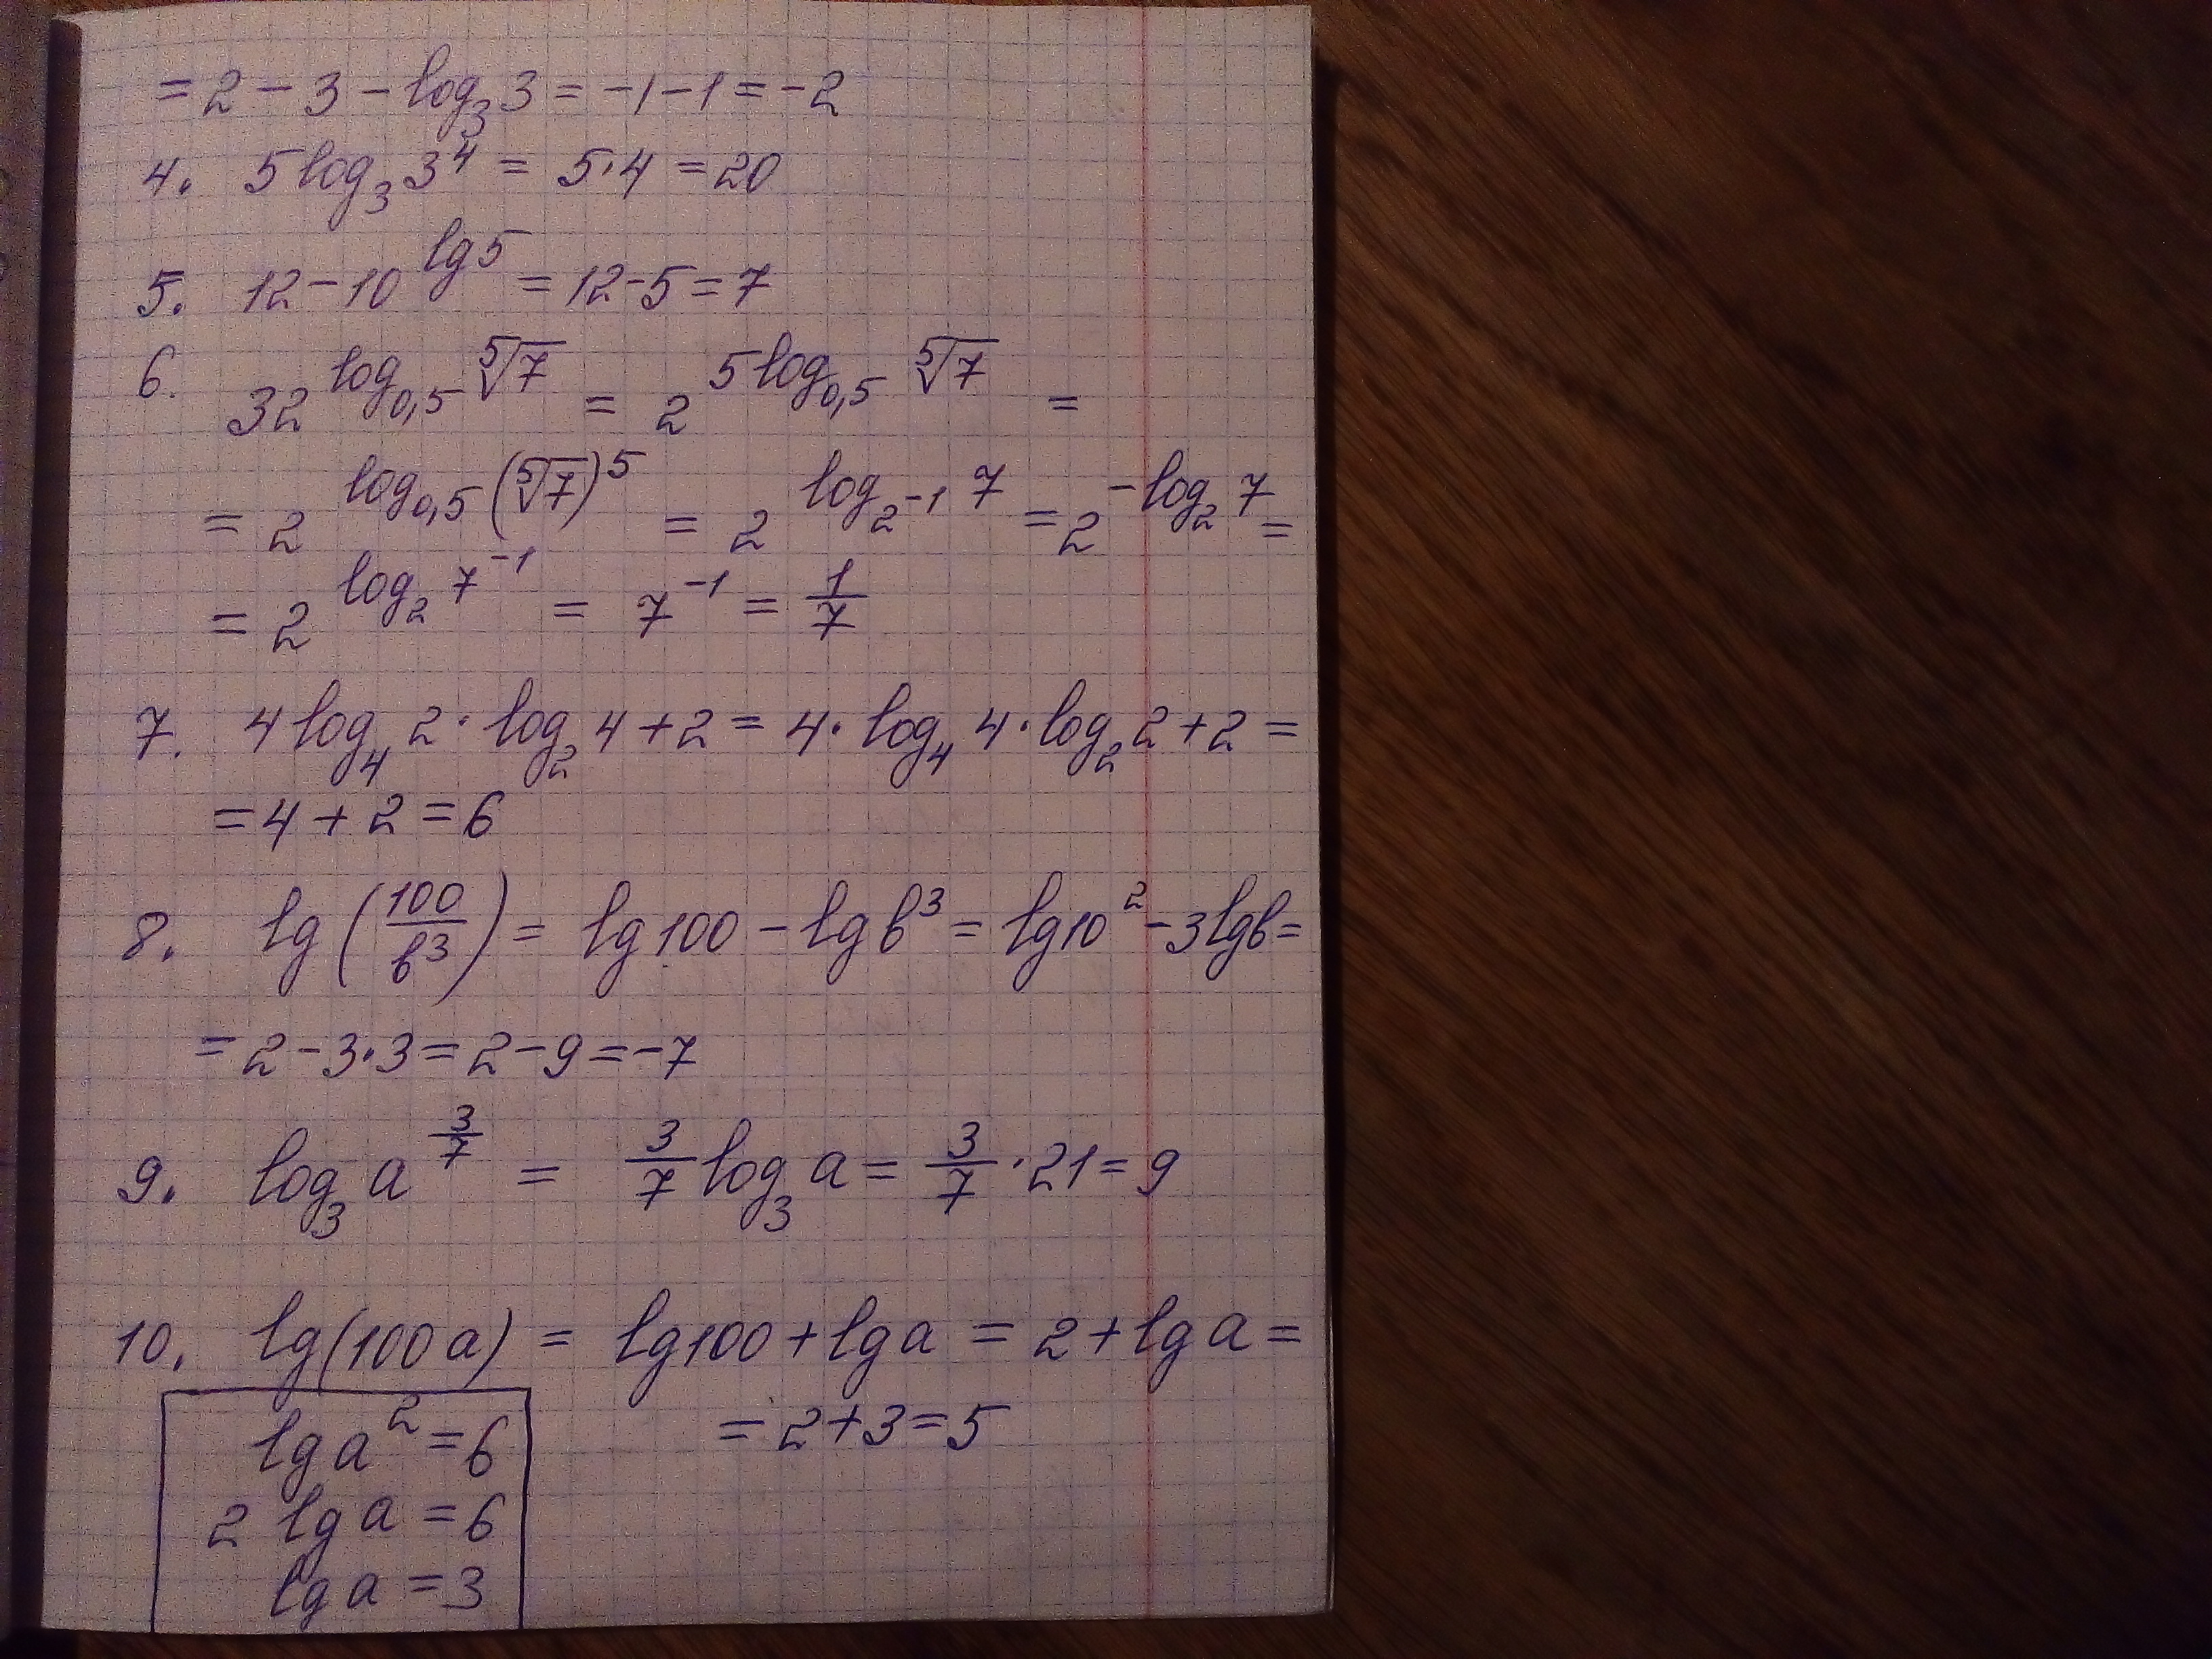 = 2 - 3 - log₃ 3 = -1 - 1 = -2
4. 5 log₃ 3⁴ = 5·4 = 20
5. 12 - 10^(lg 5) = 12 - 5 = 7
6. 32^(log_0,5 ⁵√7) = 2^(5 log_0,5 ⁵√7) =
= 2^(log_0,5 (⁵√7)⁵) = 2^(log_2⁻¹ 7) = 2^(-log₂ 7) =
= 2^(log₂ 7⁻¹) = 7⁻¹ = 1/7
7. 4 log₄ 2 · log₂ 4 + 2 = 4 · log₄ 4 · log₂ 2 + 2 =
= 4 + 2 = 6
8. lg (100/b³) = lg 100 - lg b³ = lg 10² - 3 lg b =
= 2 - 3·3 = 2 - 9 = -7
9. log₃ a^(3/7) = 3/7 log₃ a = 3/7 · 21 = 9
10. lg (100 a) = lg 100 + lg a = 2 + lg a =
= 2 + 3 = 5
lg a² = 6
2 lg a = 6
lg a = 3